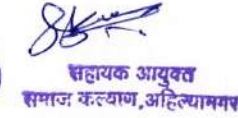 सहायक आयुक्त
समाज कल्याण, अहिल्यानगर